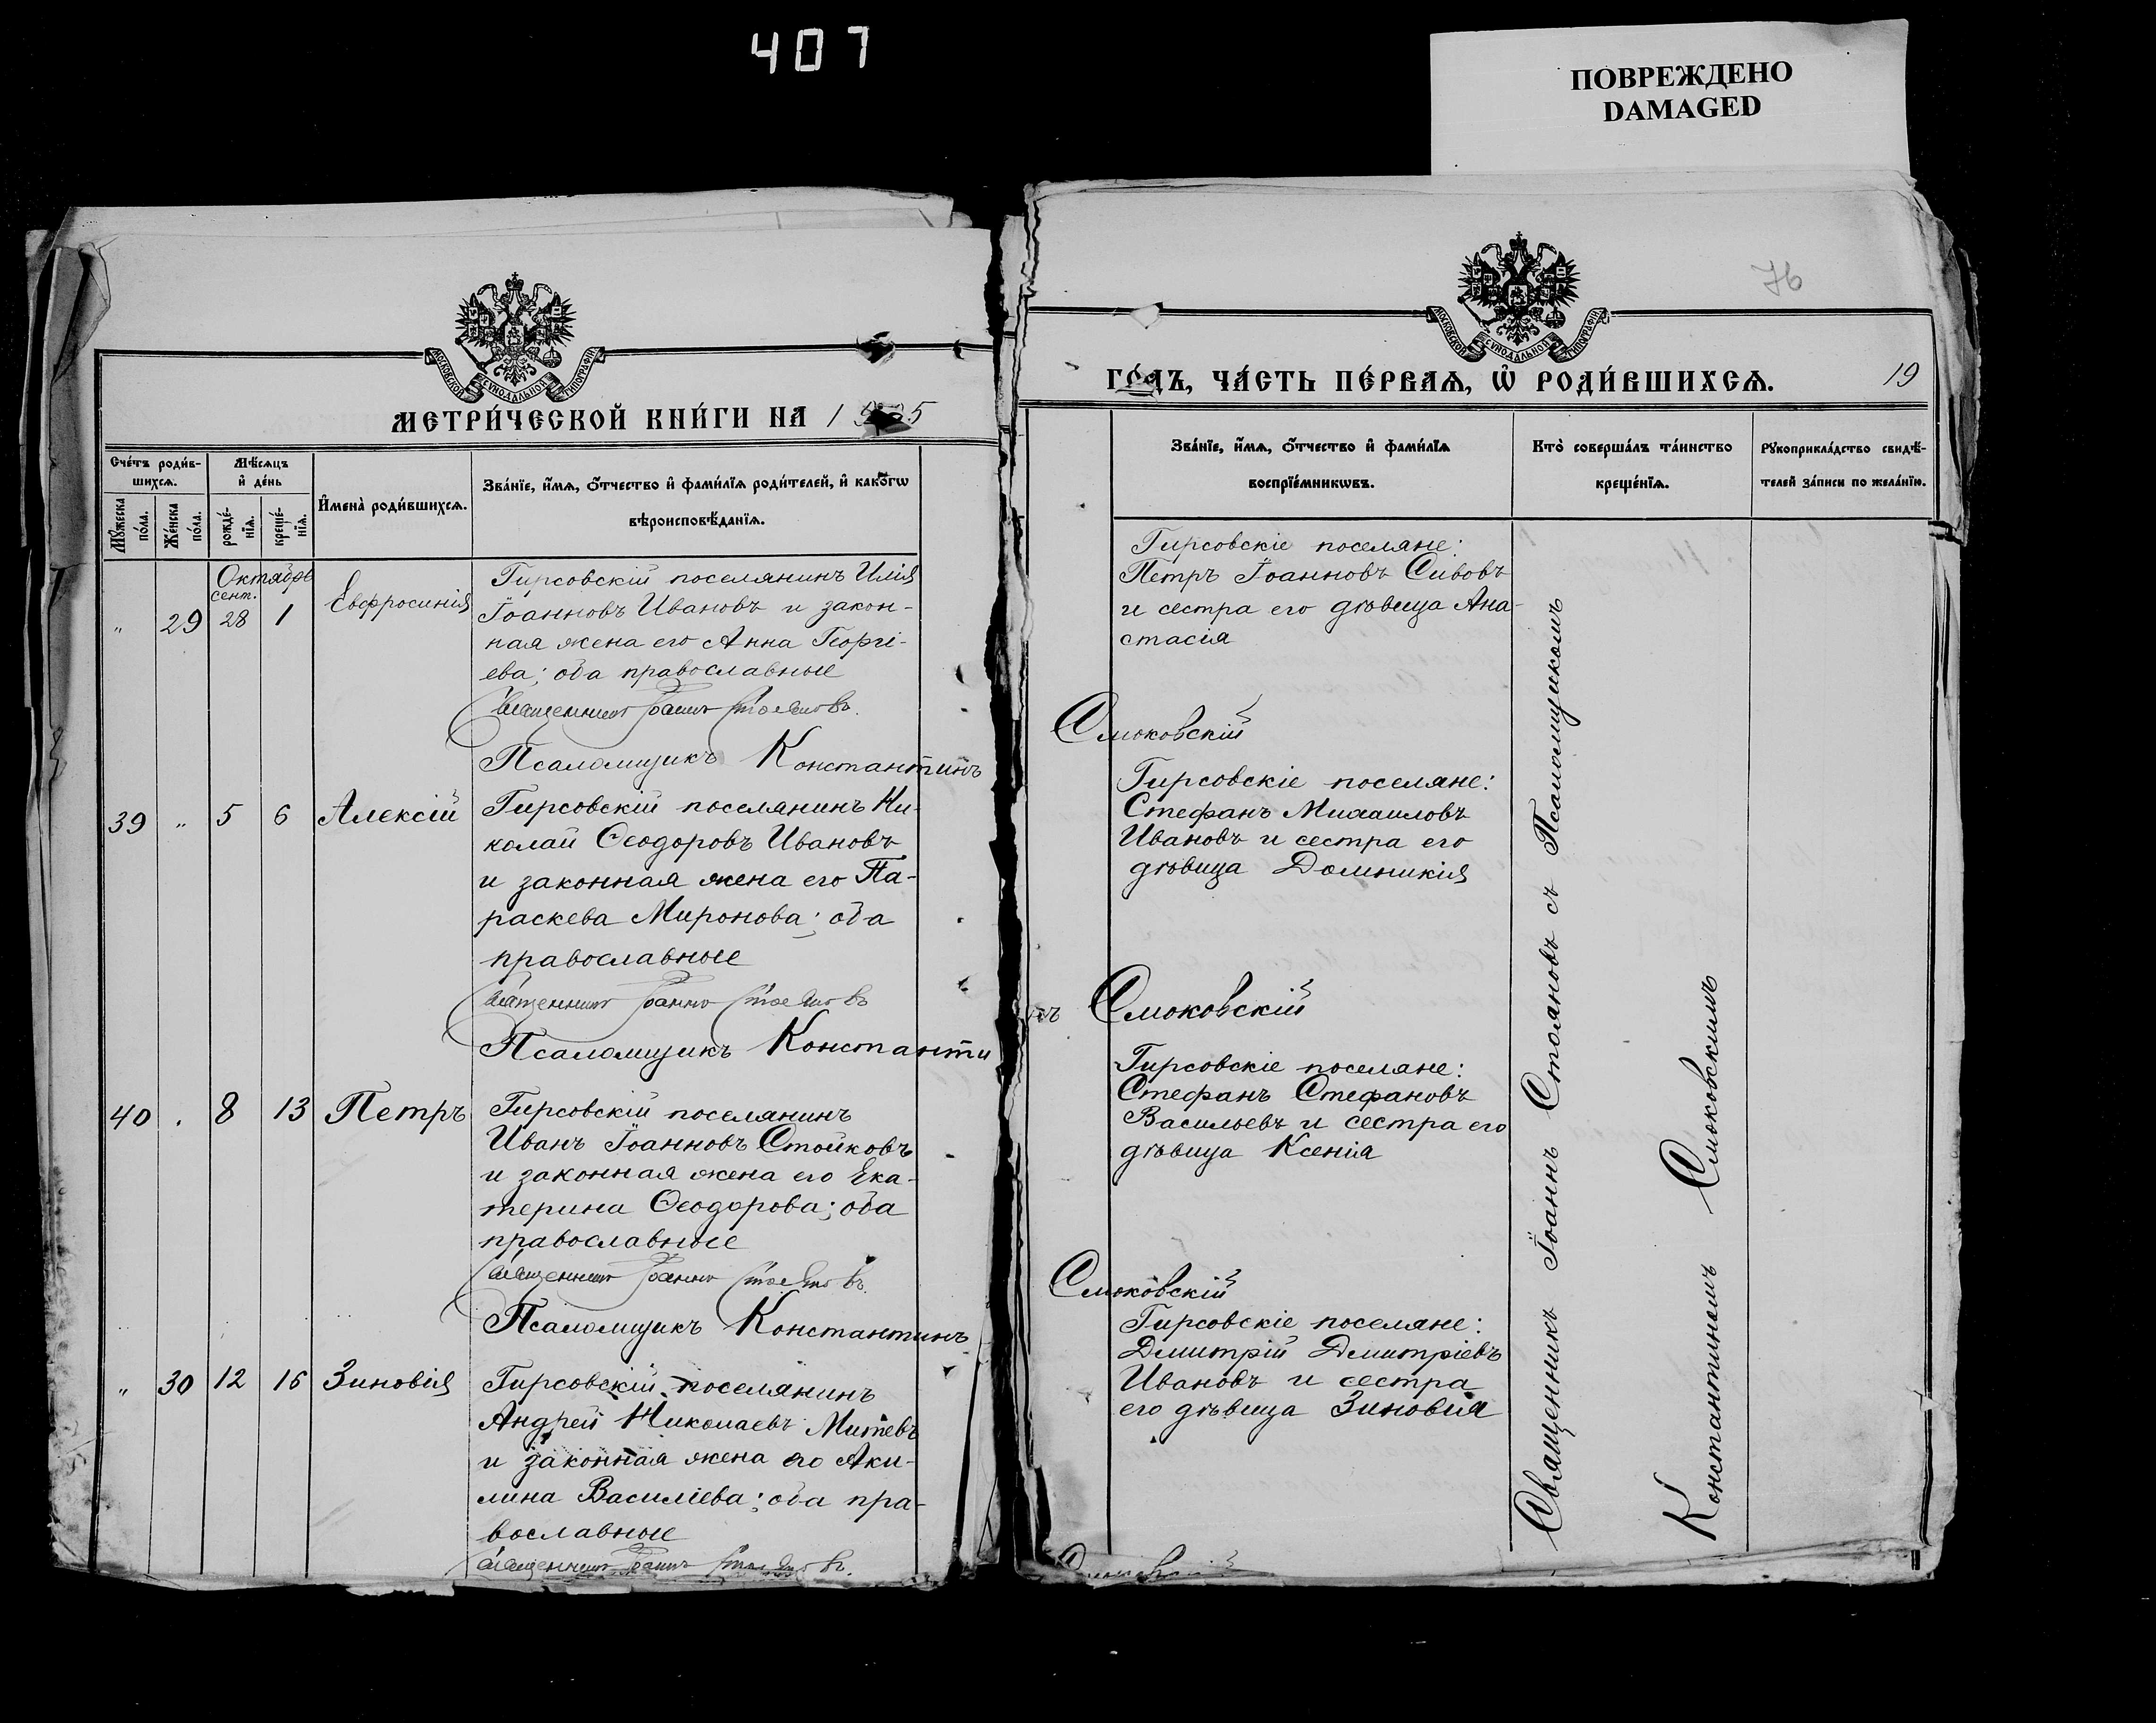 407
ПОВРЕЖДЕНО
DAMAGED
76
МОСКОВСКОЙ СѴНОДАЛЬНОЙ ТИПОГРАФІИ
МЕТРИ́ЧЕСКОЙ КНИ́ГИ НА 1 5
Сче́тъ роди́в-
шихсѧ.
Мѣ́сѧцъ
и҆ де́нь
И҆мена̀ роди́вшихсѧ.
Зва́нїе, и҆́мѧ, ѻ҆́тчество и҆ фами́лїѧ роди́телей, и҆ како́гѡ
вѣроисповѣ́данїѧ.
Мꙋ́жеска
по́ла.
Же́нска
по́ла.
рожде́-
нїѧ.
креще́-
нїѧ.
Октябрь
сент.
„ 29 28 1 Евфросинія
Гирсовскій поселянинъ Илія
Іоанновъ Ивановъ и закон-
ная жена его Анна Георгі-
ева; оба православные
Священникъ Іоаннъ Стояновъ.
Псаломщикъ Константинъ
39 „ 5 6 Алексій
Гирсовскій поселянинъ Ни-
колай Ѳеодоровъ Ивановъ
и законная жена его Па-
раскева Миронова; оба
православные
Священникъ Іоаннъ Стояновъ
Псаломщикъ Константи
40 . 8 13 Петръ
Гирсовскій поселянинъ
Иванъ Іоанновъ Стойковъ
и законная жена его Ека-
терина Ѳеодорова; оба
православные
Священникъ Іоаннъ Стояновъ.
Псаломщикъ Константинъ
„ 30 12 16 Зиновія
Гирсовскій поселянинъ
Андрей Николаевъ Митевъ
и законная жена его Аки-
лина Василіева; оба пра-
вославные
Священникъ Іоаннъ Стояновъ.
МОСКОВСКОЙ СѴНОДАЛЬНОЙ ТИПОГРАФІИ
ГО́ДЪ, ЧА́СТЬ ПЕ́РВАѦ, Ѽ РОДИ́ВШИХСѦ.
19
Зва́нїе, и҆́мѧ, ѻ҆́тчество и҆ фами́лїѧ
воспрїе́мникѡвъ.
Кто̀ соверша́лъ та́инство
креще́нїѧ.
Рꙋкоприкла́дство свидѣ́-
телей за́писи по жела́нїю.
Гирсовскіе поселяне:
Петръ Іоанновъ Сивовъ
и сестра его дѣвица Ана-
стасія
Смоковскій
Гирсовскіе поселяне:
Стефанъ Михаиловъ
Ивановъ и сестра его
дѣвица Домникія
нъ Смоковскій
Гирсовскіе поселяне:
Стефанъ Стефановъ
Васильевъ и сестра его
дѣвица Ксенія
Смоковскій
Гирсовскіе поселяне:
Дмитрій Дмитріевъ
Ивановъ и сестра
его дѣвица Зиновія
Смоковскій
Священникъ Іоаннъ Стояновъ съ Псаломщикомъ
Константиномъ Смоковскимъ